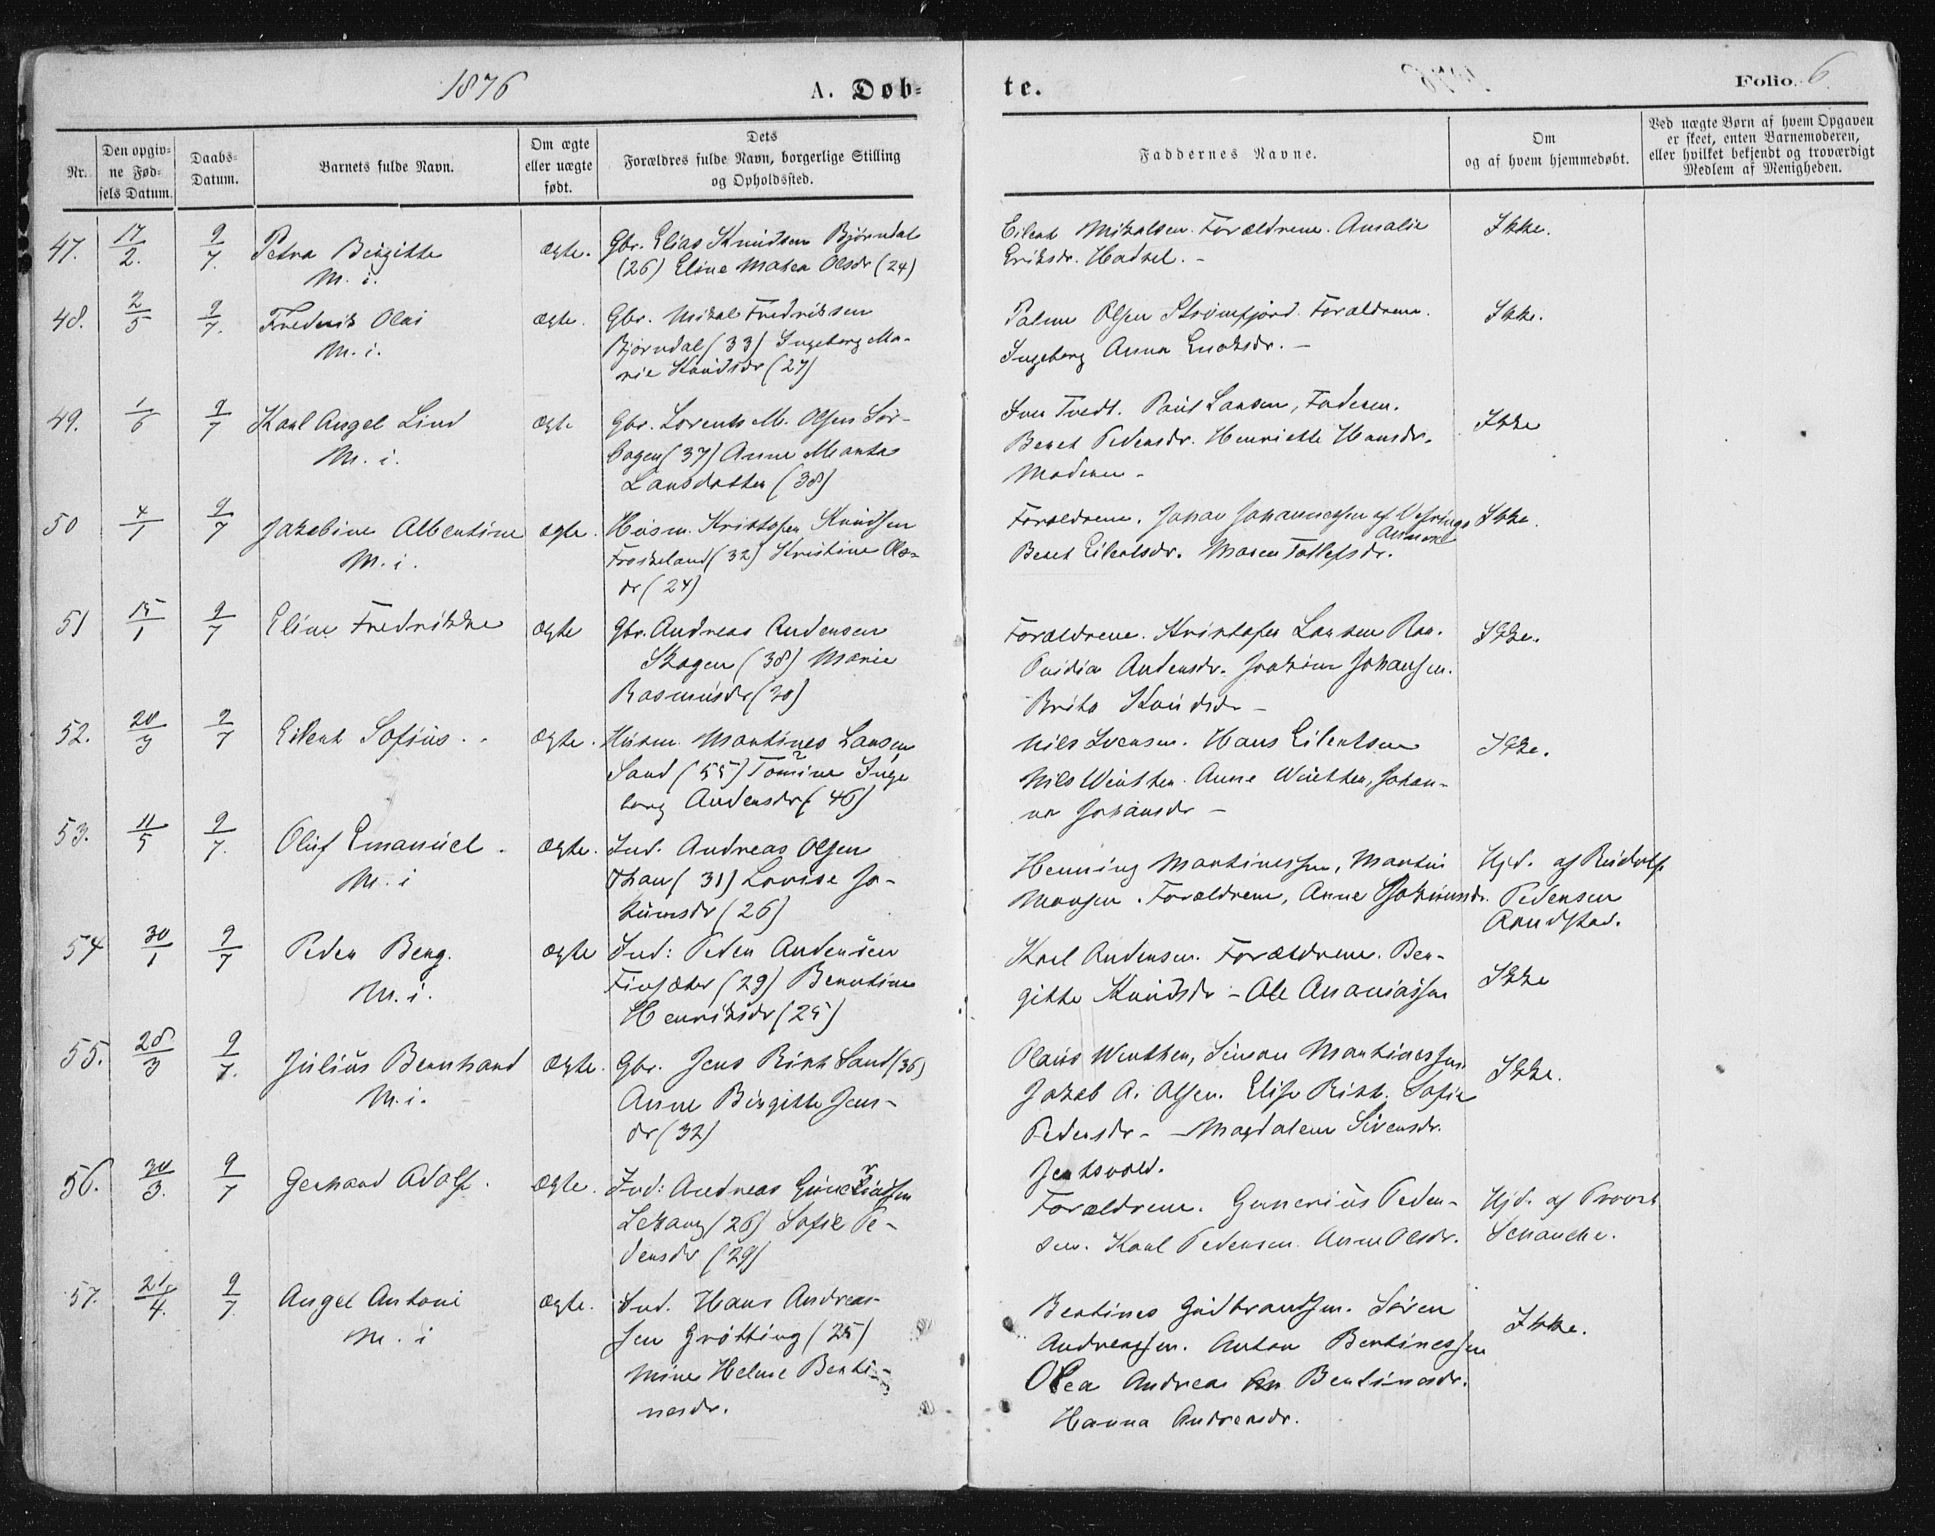 1876
A. Døb-
te.
Folio 6.
Nr.
Den opgiv-
ne Fød-
sels Datum.
Daabs-
Datum.
Barnets fulde Navn.
Om ægte
eller uægte
født.
Dets
Forældres fulde Navn, borgerlige Stilling
og Opholdssted.
Faddernes Navne.
Om
og af hvem hjemmedøbt.
Ved uægte Børn af hvem Opgaven
er skeet, enten Barnemoderen,
eller hvilket bekjendt og troværdigt
Medlem af Menigheden.
47. 17/2. 9/7. Petra Birgitte
M. i.
ægte.
Gbr. Elias Knudsen Bjørndal
(26) Eline Marea Olsdr (24)
Eilert Mikalsen. Forældrene. Amalie
Eriksdr. Hadsel. -
Ikke.
48. 2/5 9/7. Fredrik Olai
M. i.
ægte.
Gbr. Mikal Fredriksen
Bjørndal (33) Ingeborg Ma-
rie Knudsdr (27)
Palme Olsen Strømfjord. Forældrene.
Ingeborg Anna Enoksdr. -
Ikke.
49. 1/6 9/7 Karl Angel Lind
M. i.
ægte
Gbr. Lorents M. Olsen Sør-
(37) Anne Marta
Larsdatter (38)
Iver Tvedt. Paul Larsen, Faderen.
Beret Pedersdr. Henriette Hansdr.
Moderen -
Ikke
50 4/1 9/7 Jakobine Albertine
M. i.
ægte.
Husm. Kristofer Knudsen
Froskeland (32) Kristine Ols-
dr (24)
Forældrene. Johan Johannessen af
Beret Eilertsdr. Maren Tollefsdr.
Ikke.
51 15/1 9/7 Eline Fredrikke
ægte
Gbr. Andreas Andersen
Skogen (38) Marie
Rasmusdr (30)
Forældrene. Kristofer Larsen
Andersdr. Joakim Johansen.
Brita Knudsdr -
Ikke.
52. 20/3 9/7 Eilert Sofius. -
ægte.
Husm. Martines Larsen
Sand (55) Tomine Inge
borg Andersdr (46)
Nils Iversen. Hans Eilertsen
Nils Winther. Anne Winther, Johan-
na Johansdr -
Ikke.
53. 11/5 9/7. Oluf Emanuel.
M. i
ægte.
Ind. Andreas Olsen
(31) Lovise Jo-
kumsdr (26)
Henning Martinessen, Martin
Monsen. Forældrene, Anne Jokumsdr.
Hjd. af Rudolf
Pedersen
Rondstad.
54 30/1 9/7 Peder Berg.
M. i.
ægte
Ind: Peder Andersen
Finsæter (29) Berntine
Henriksdr (25)
Karl Andersen. Forældrene. Ber-
gitte Knudsdr - Ole Ananiassen
Ikke
55. 28/3 9/7. Julius Bernhard
M. i.
ægte.
Gbr. Jens Rist Sand (36)
Anne Birgitte Jens-
dr (32)
Olaus Winther, Simon Martinessen.
Jakob A. Olsen. Elise Rist. Sofie
Pedersdr - Magdalene Sivensdr.
Jentsvold.
Ikke.
56. 30/3. 9/7 Gerhard Adolf.
ægte.
Ind: Andreas
Lekang (26) Sofie Pe-
dersdr (29)
Forældrene. Gunerius Peder-
sen. Karl Pedersen. Anne Olsdr.
Hjd. af Provst
Schanche.
57. 21/4. 9/7. Angel Antoni
M. i
ægte.
Ind. Hans Andreas-
sen Grøtting (25)
Mine Helme Berti-
nesdr.
Bertines Gudbrandsen. Søren
Andreassen. Anton Bertinessen
Olea Andrea Bertinesdr.
Hanna Andreasdr.
Ikke.